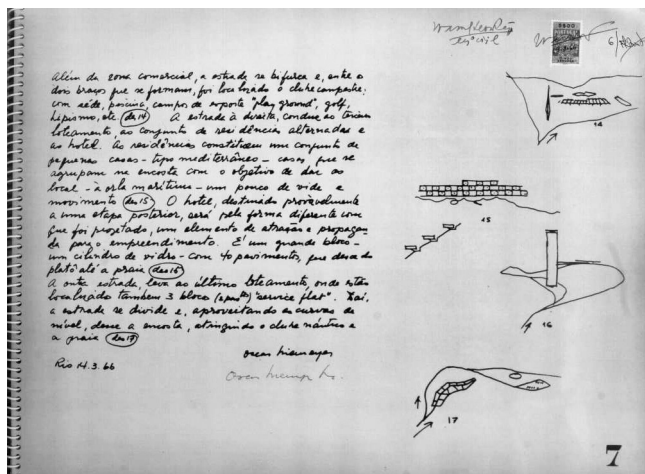 Além da zona comercial, a estrada se bifurca e, entre os
dois braços que se formam, foi localizado o clube campestre:
com séde, piscina, campos de esporte "play ground", golf,
hipismo, etc. (des 14) A estrada à direita, conduz ao terceiro
loteamento, ao conjunto de residências alternadas e
ao hotel. As residências constituem um conjunto de
pequenas casas - tipo mediterrâneo - casas que se
agrupam na encosta com o objetivo de dar ao
local - à orla marítima - um pouco de vida e
movimento (des 15) O hotel, destinado provavelmente
a uma etapa posterior, será pela forma diferente com
que foi projetado, um elemento de atração e propagan-
da para o empreendimento. É um grande bloco -
um cilindro de vidro - com 40 pavimentos, que desce do
platô até a praia (des 16)
A outra estrada, leva ao último loteamento, onde estão
localizados tambem 3 blocos "service flat". Daí,
a estrada se divide e, aproveitando as curvas de
nível, desce a encosta, atingindo o clube náutico e
a praia (des 17)
oscar niemeyer
Rio 14.3.66
14
15
16
17
7